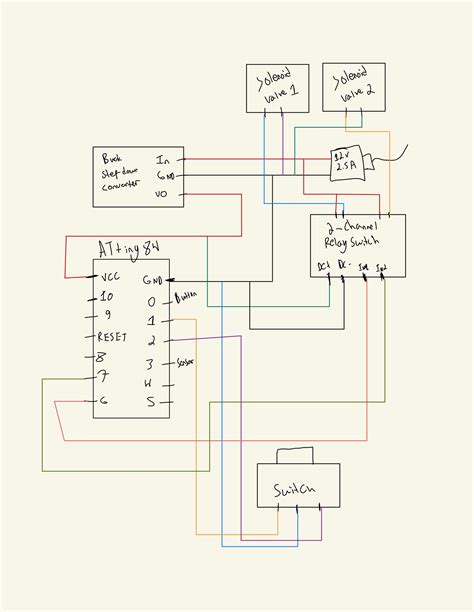 Solenoid
valve 1
Solenoid
valve 2
12V
2.5A
Buck
step down
converter
In
GND
VO
2-Channel
Relay Switch
DC+
DC-
In1
In2
ATtiny84
VCC
10
9
RESET
8
7
6
GND
0
Button
1
2
3
Sensor
4
5
Switch